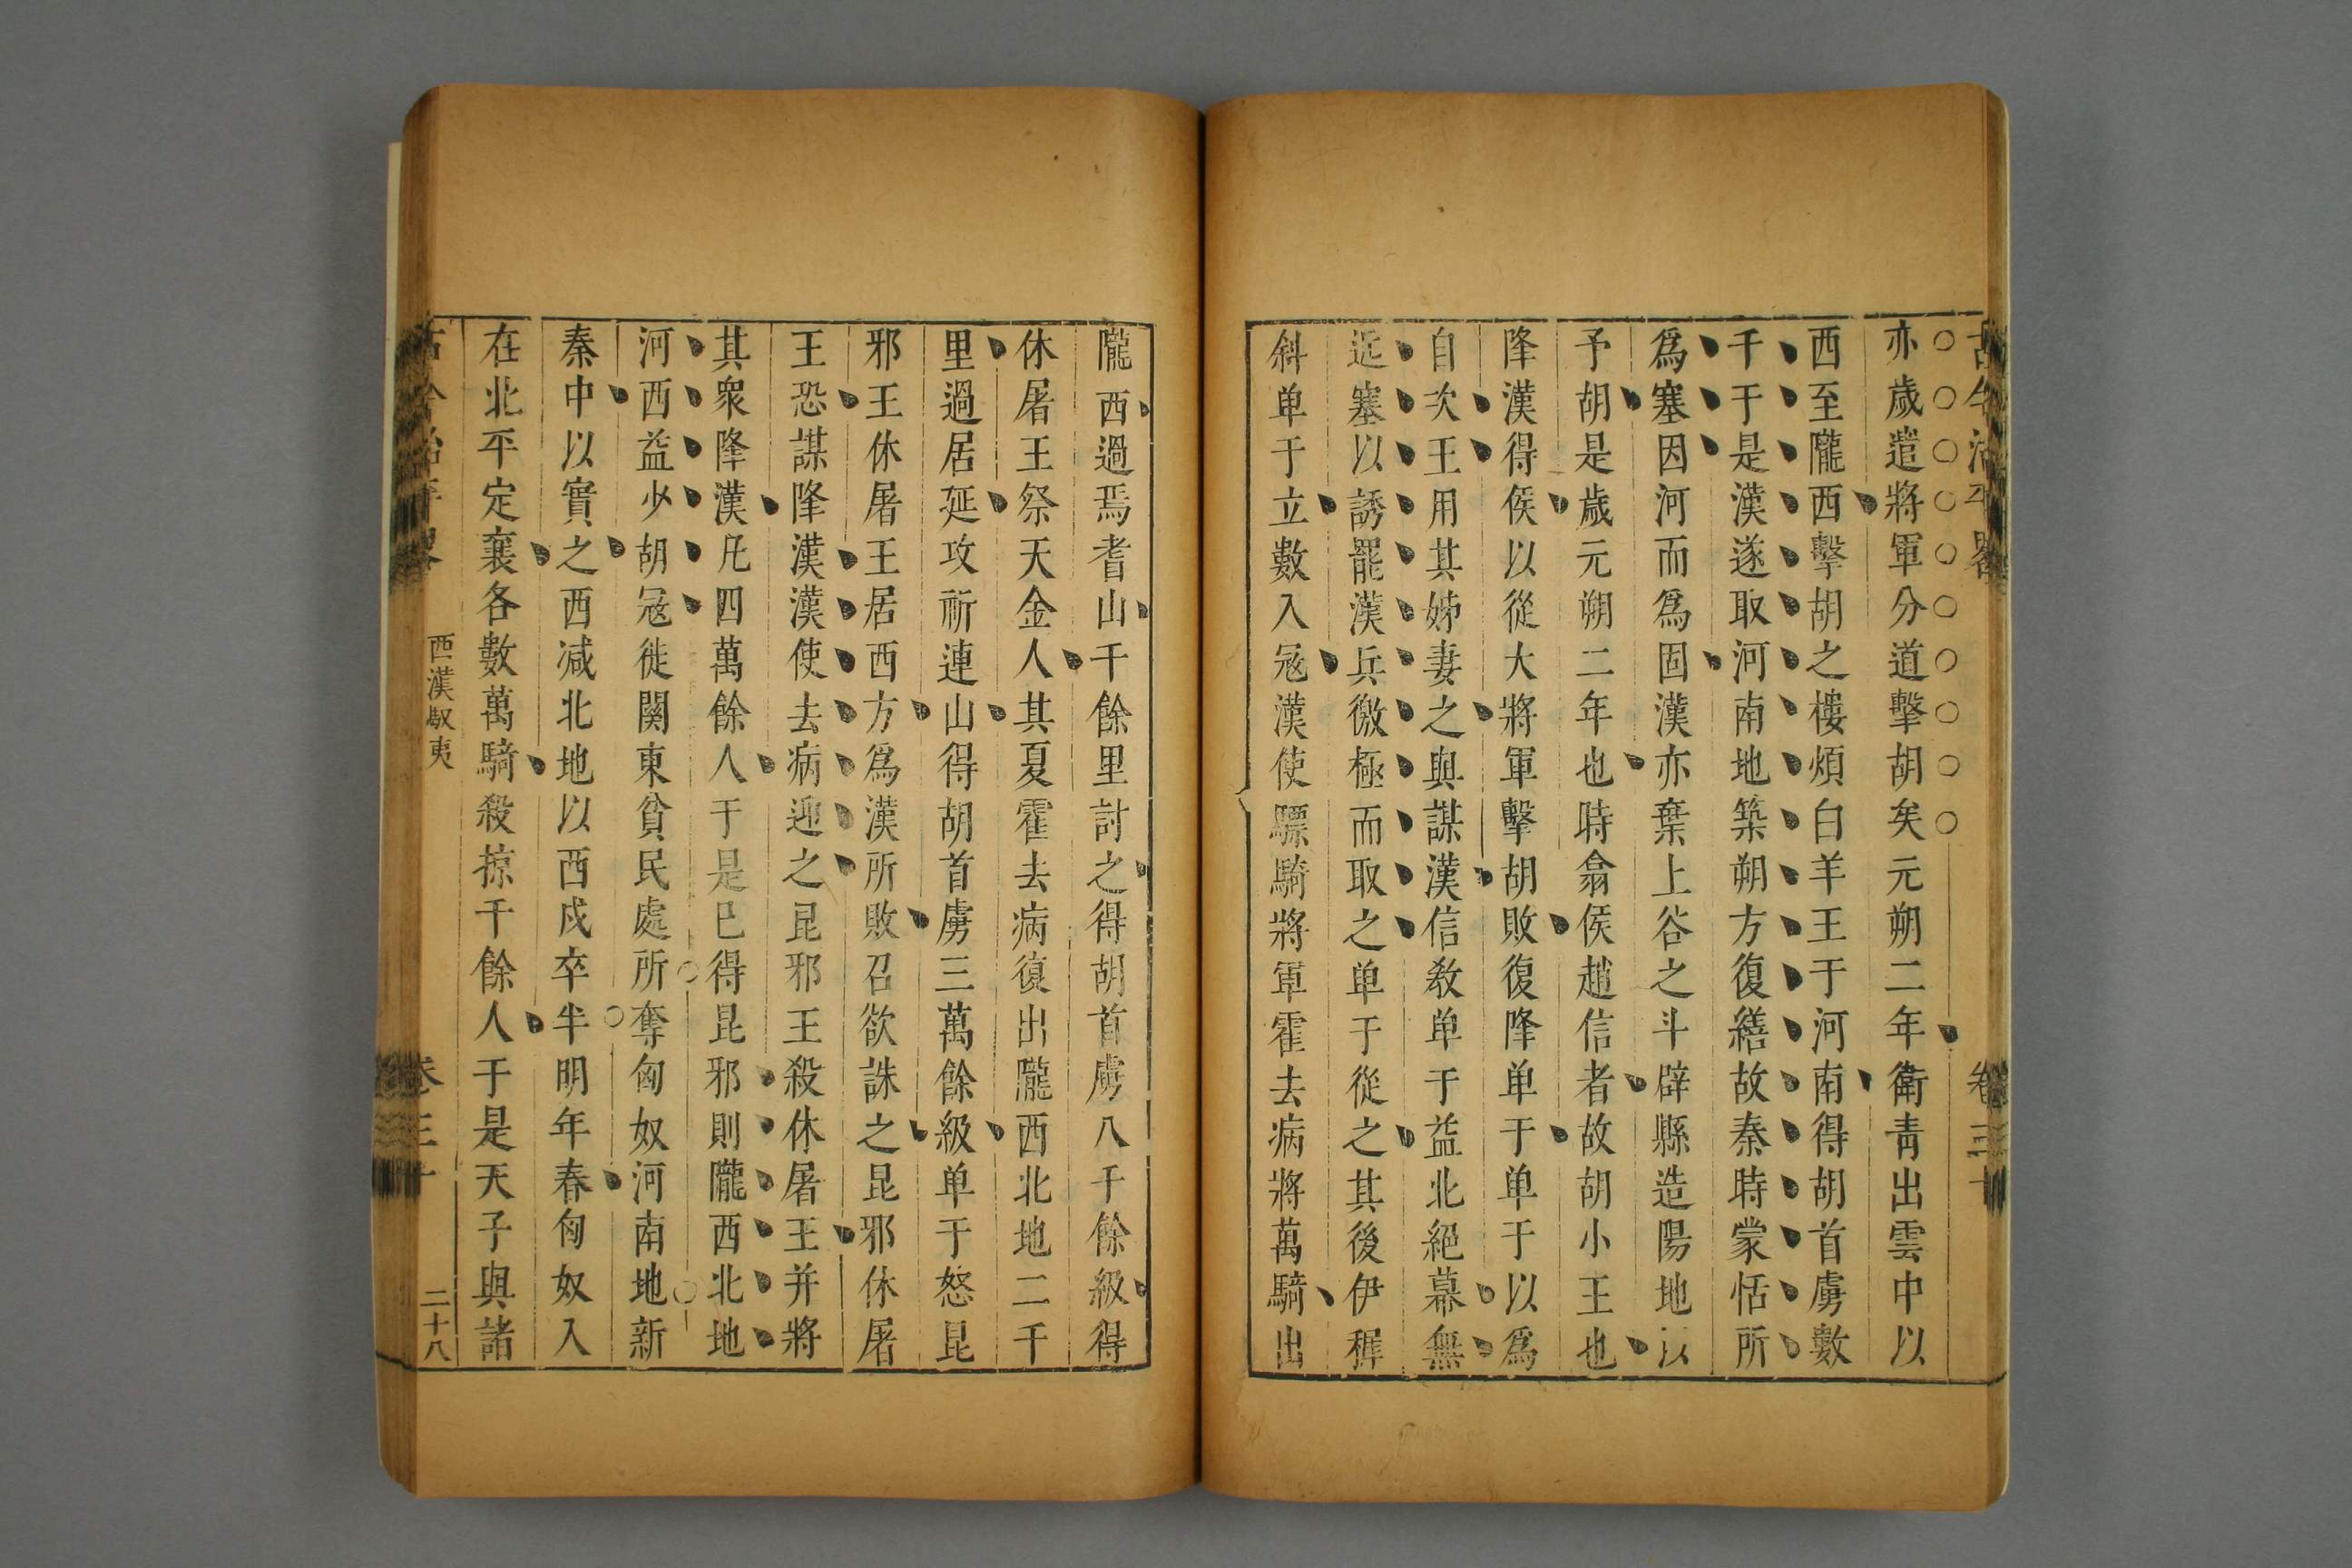 古今治平畧 卷三十
亦歲遣將軍分道擊胡矣元朔二年衛青出雲中以
西至隴西擊胡之樓煩白羊王于河南得胡首虜數
千于是漢遂取河南地築朔方復繕故秦時蒙恬所
爲塞因河而爲固漢亦棄上谷之斗辟縣造陽地以
予胡是歲元朔二年也時翕侯趙信者故胡小王也
降漢得侯以從大將軍擊胡敗復降单于单于以爲
自次王用其姊妻之與謀漢信教单于益北絕幕無
近塞以誘罷漢兵徼極而取之单于從之其後伊穉
斜单于立數入冦漢使驃騎將軍霍去病將萬騎出
隴西過焉耆山千餘里討之得胡首虜八千餘級得
休屠王祭天金人其夏霍去病復出隴西北地二千
里過居延攻祈連山得胡首虜三萬餘級单于怒昆
邪王休屠王居西方爲漢所敗召欲誅之昆邪休屠
王恐謀降漢漢使去病迎之昆邪王殺休屠王并將
其衆降漢凡四萬餘人于是已得昆邪則隴西北地
河西益少胡冦徙關東貧民處所奪匈奴河南地新
秦中以實之西減北地以西戍卒半明年春匈奴入
在北平定襄各數萬騎殺掠千餘人于是天子與諸
古今治平畧 西漢馭夷 卷三十 二十八